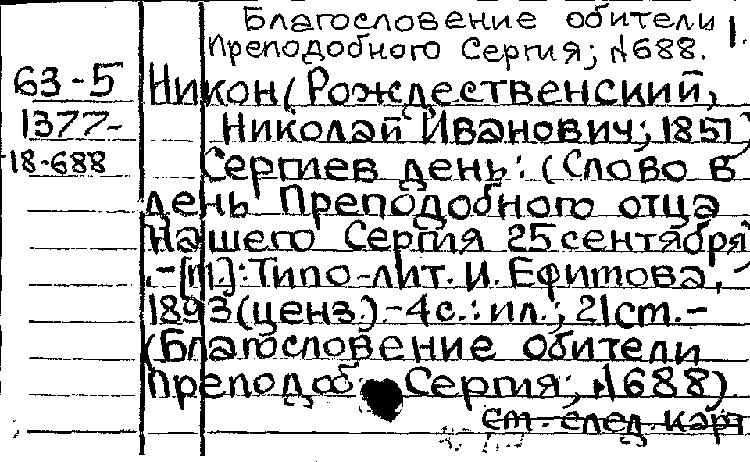 Благословение обители 1.
Преподобного Сергия; №688.
63-5 Никон (Рождественский,
1377- Николай Иванович; 1851)
18-688 Сергиев день: (Слово в
день Преподобного отца
нашего Сергия 25 сентября)
.-[m.]: Типо-лит. И. Ефимова,
1893 (ценз.).-4с.: ил.; 21см.-
(Благословение обители
преподоб. Сергия; №688)
см. след. карт